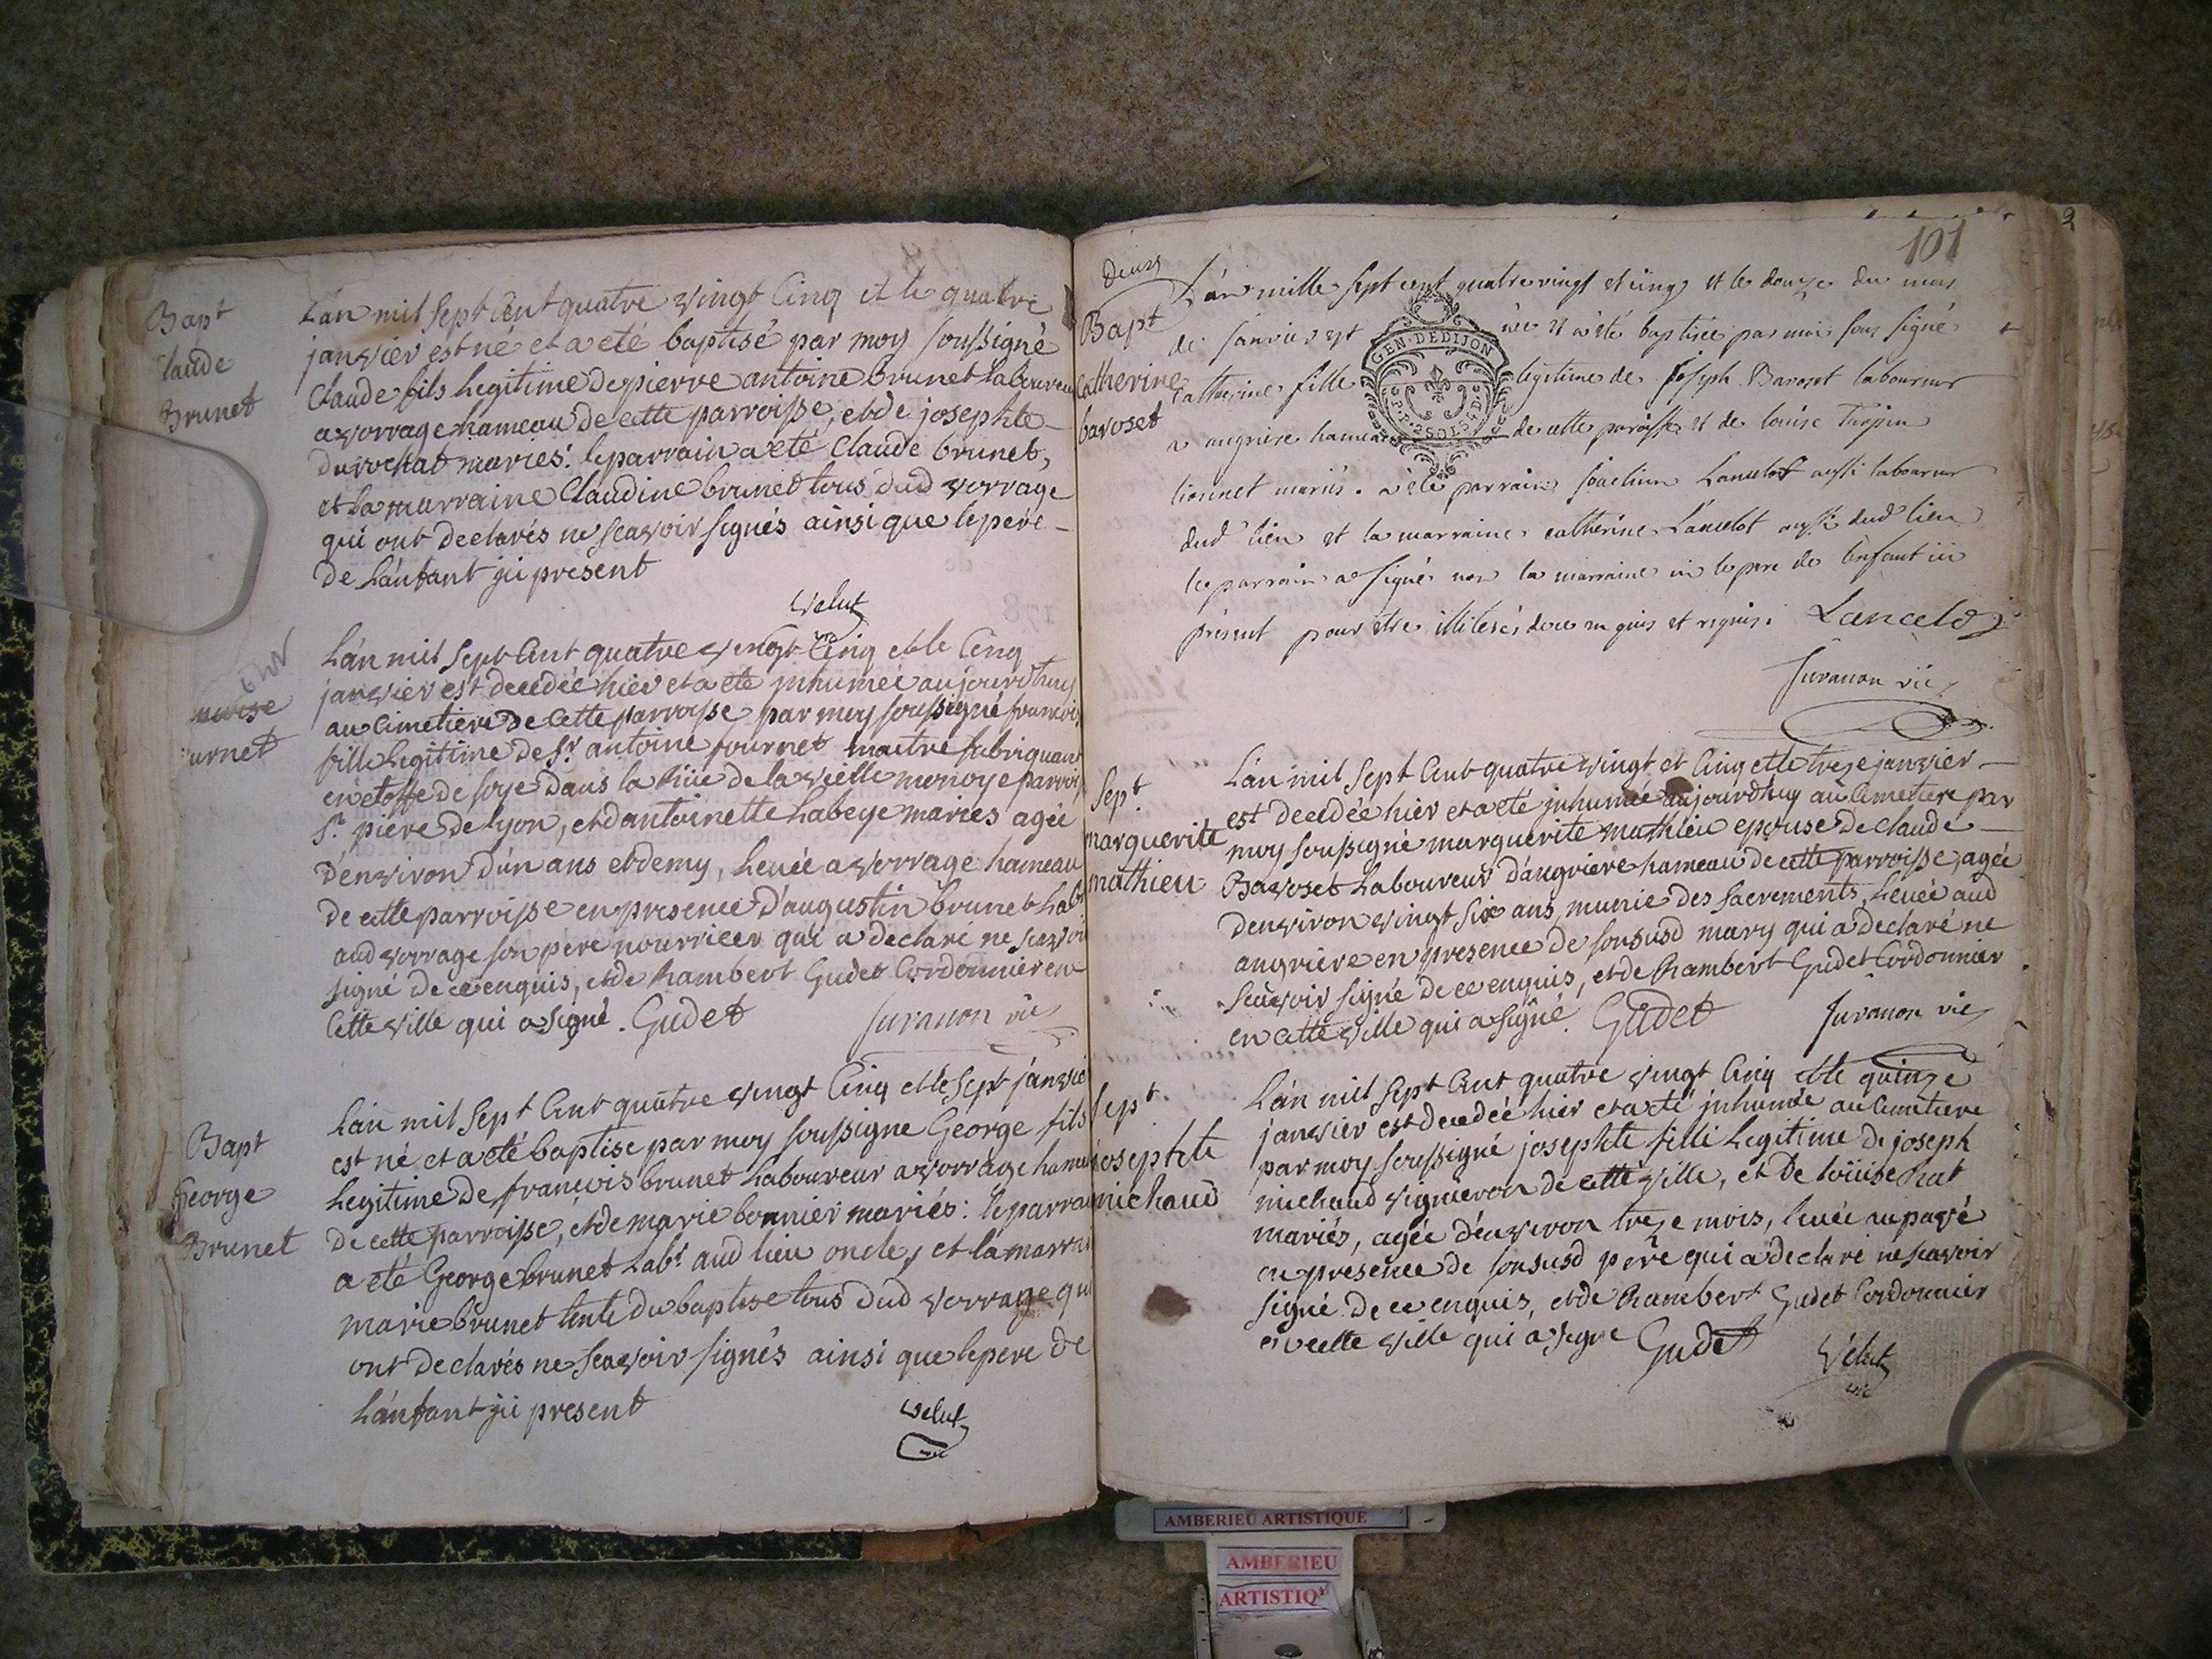 Bapt
laude
Brunet
Lan mil Sept Cent quatre vingt Cinq et le quatre
janvier est né et a eté baptisé par moy soussigné
Claude fils legitime de pierre antoine brunet laboureu
a vorrage hameau de cette parroisse, et de josephte
durochat mariés. le parrain a eté Claude brunet,
et la marraine Claudine brunet tous dud vorrage
qui ont declarés ne scavoir signés ainsi que le pere
de l'anfant ji present
Velut
vic
urnet
L'an mil Sept Cent quatre vingt Cinq et le Cinq
janvier est decedée hier et a eté inhumée aujourd'huy
au Cimetiere de Cette parroisse par moy soussigné francois
fille legitime de Sr. antoine fournet maitre fabriquant
en etoffe de soye dans la rüe de la vielle monoye parrois
St. piere de lyon, et d'antoinette Labeye mariés agée
d'environ d'un ans et demy, levée a vorrage hameau
de cette parroisse en presence d'augustin brunet Labr
aud vorrage son pere nourricer qui a declaré ne scavoi
signé de ce enquis, et de Rambert Gudet Cordonnier en
Cette ville qui a signé. Gudet Juvanon vic
Bapt
George
Brunet
L'an mil Sept Cent quatre vingt Cinq et le Sept janvie
est né et a eté baptise par moy soussigne George fils
Legitime de francois brunet Laboureur a vorrage hame
de cette parroisse, et de marie bonnier mariés: le parrai
a eté George brunet Labr. aud lieu oncle, et la marrai
marie brunet tente du baptise tous dud vorrage qui
ont declarés ne scavoir signés ainsi que le pere de
L'anfant ji present
Velut
vic
101
deux
Bapt
Catherine
baroset
L'an mille sept cent quatre vingt et cinq et le douze du mois
de janvier est née et a été baptisée par moi sous signé
catherine fille legitime de joseph Baroset laboureur
a angriere hameau de cette paroisse et de louise Turpin
lionnet mariés. a été parrain joachim Lancelot aussi laboureur
dud lieu et la marraine catherine Lancelot aussi dud lieu
le parrain a signé non la marraine ni le pere de l'enfant ici
présent pour etre illiterés de ce enquis et requis. Lancelot
Juvanon vic
GEN. DE DIJON
Sept.
marguerite
mathieu
L'an mil Sept Cent quatre vingt et Cinq et le treze janvier
est decedée hier et a eté inhumée aujourd'huy au Cimetiere par
moy soussigné marguerite mathieu epouse de claude
Bavoset Laboureur d'angriere hameau de cette parroisse, agée
d'environ vingt six ans, munie des sacrements, levée aud
angriere en presence de son susd mary qui a declaré ne
scavoir signé de ce enquis, et de Rambert Gudet Cordonnier
en cette ville qui a signé. Gudet Juvanon vic
Sept.
josephte
michaud
L'an mil Sept Cent quatre vingt Cinq et le quinze
janvier est decedée hier et a eté inhumée au Cimetiere
par moy soussigné josephte fille legitime de joseph
michaud vigneron de cette ville, et de loüise chat
mariés, agée d'environ treze mois, levée au pavé
en presence de son susd pere qui a declaré ne scavoir
signé de ce enquis, et de Rambert Gudet Cordonnier
en cette ville qui a signe Gudet Velut
vic
AMBERIEU ARTISTIQUE
AMBERIEU
ARTISTIQ